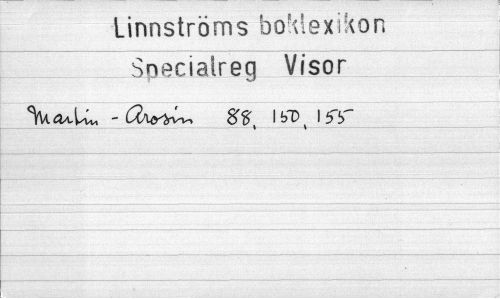 Linnströms boklexikon
Specialreg Visor
Martin - Arosin 88, 150, 155